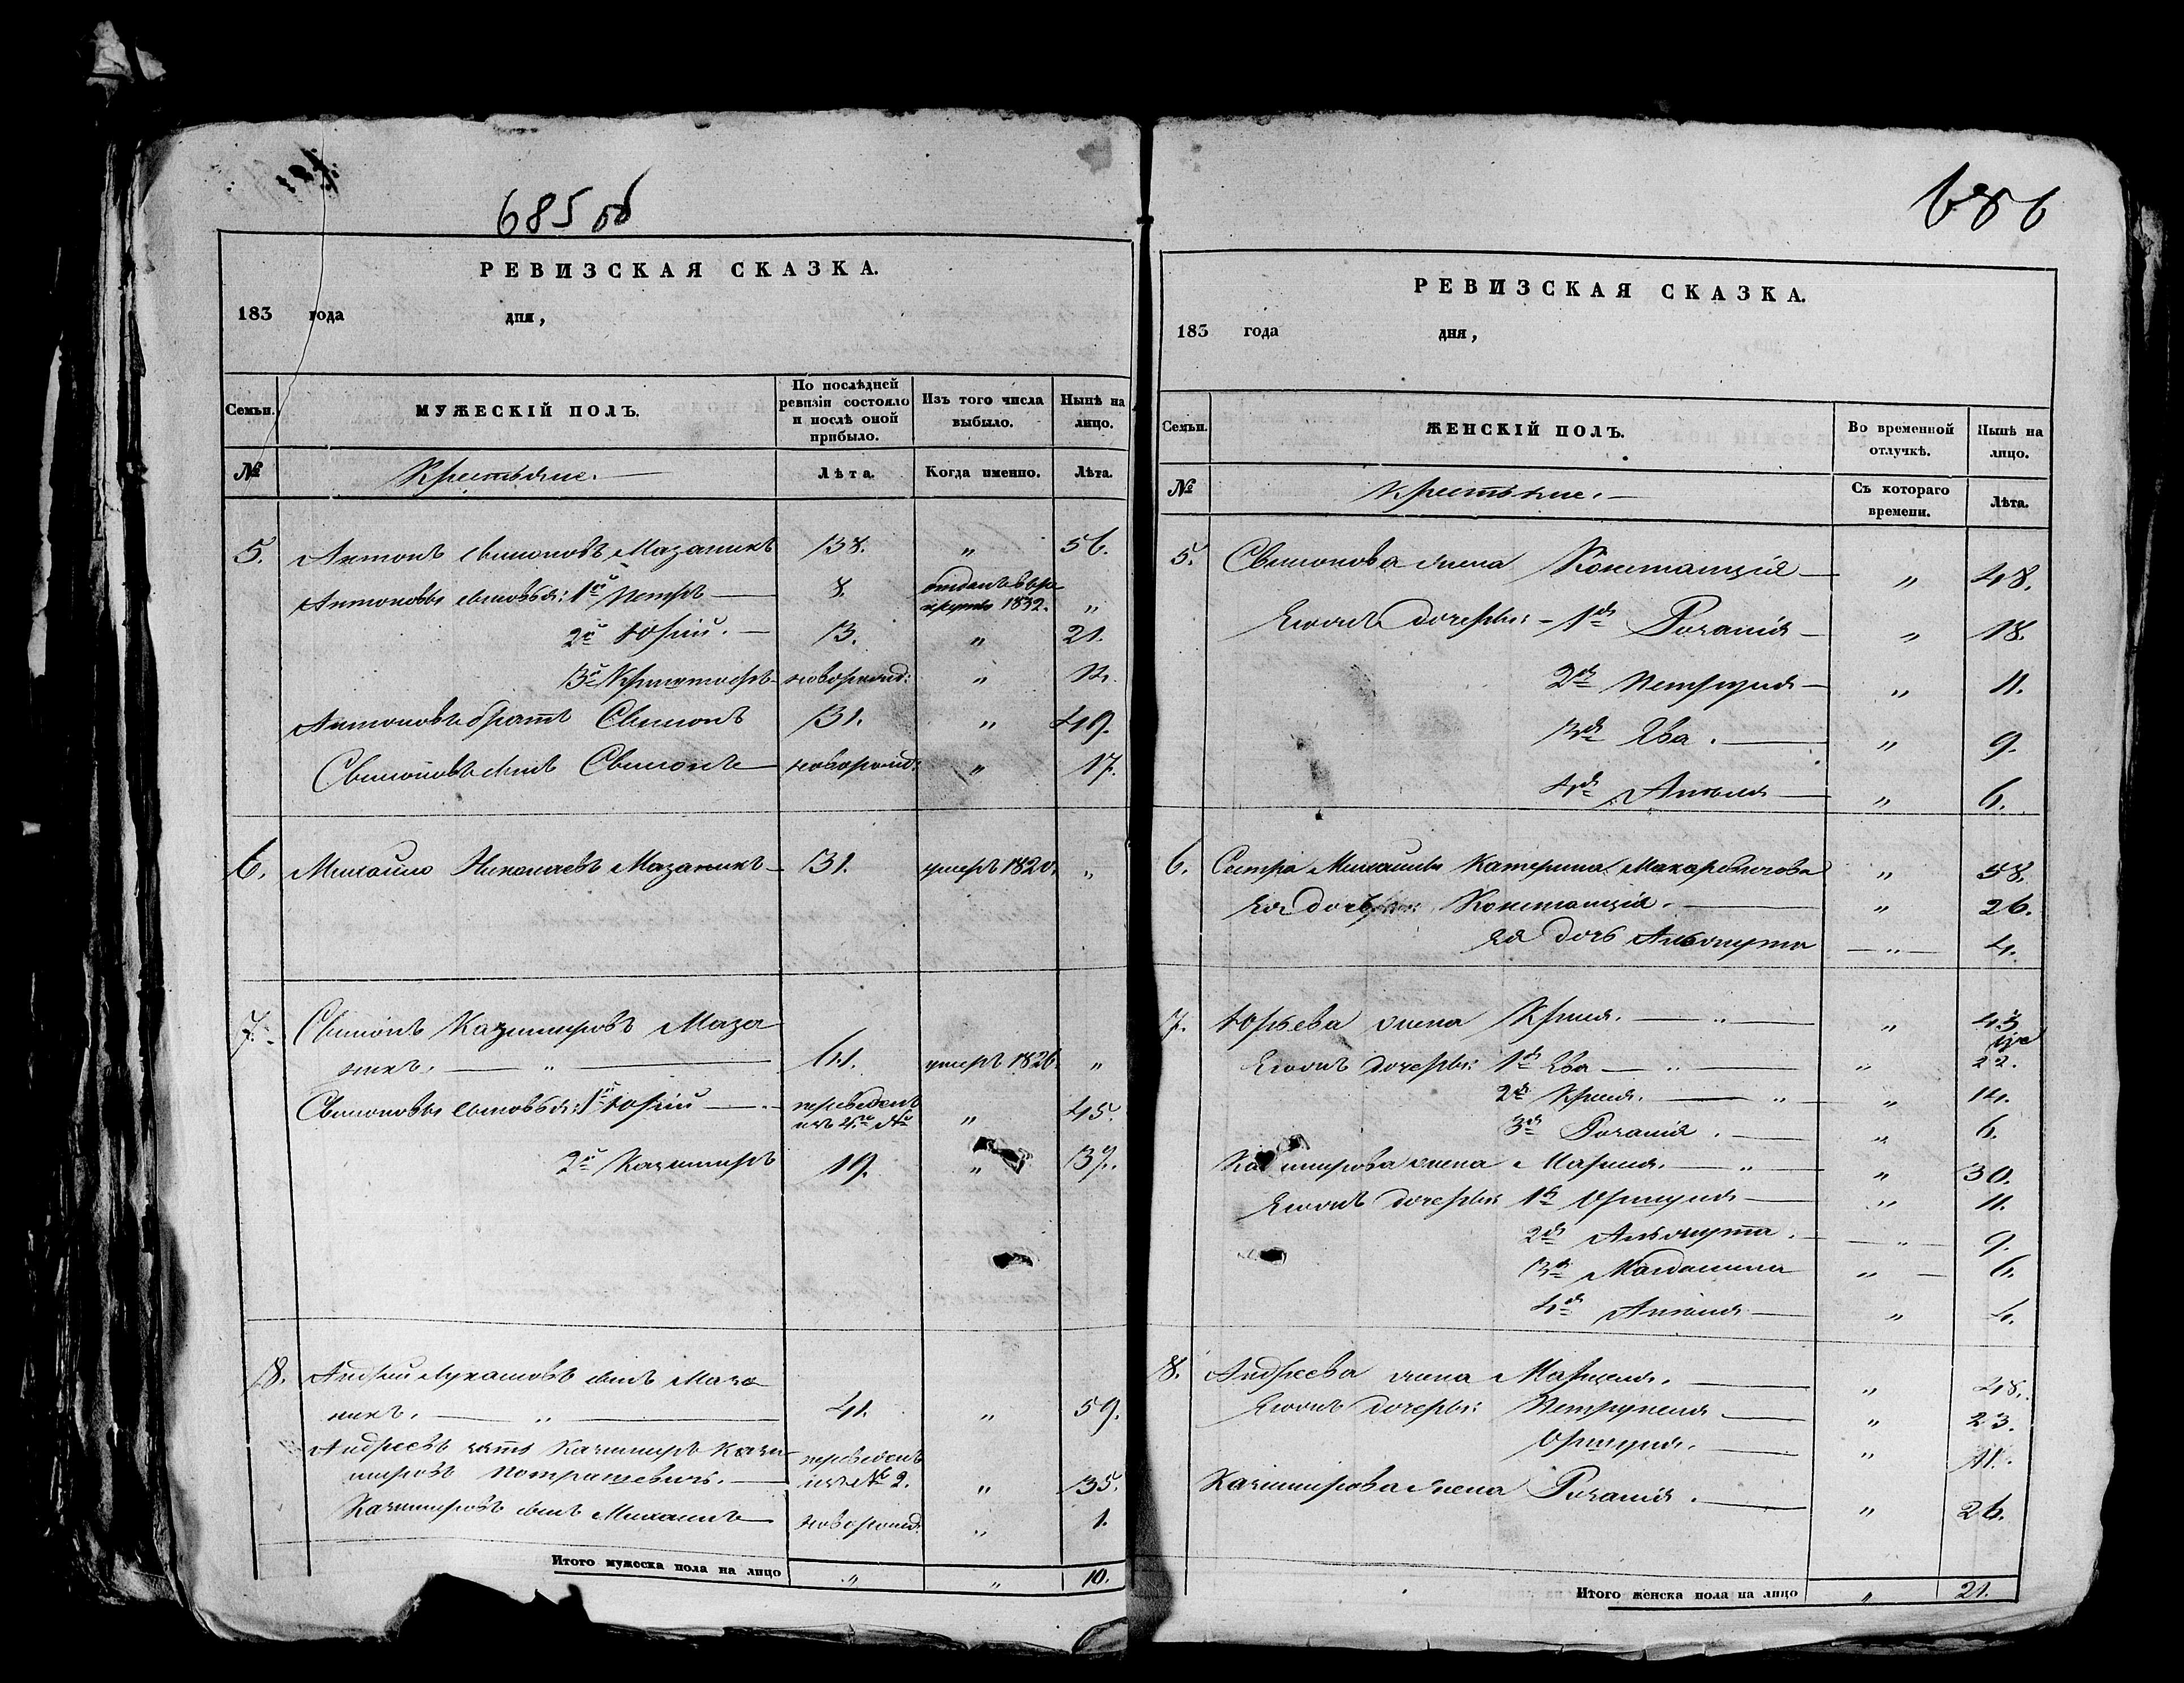 685 об
РЕВИЗСКАЯ СКАЗКА.
183 года дня,
Семьи.
МУЖЕСКІЙ ПОЛЪ.
По послѣдней ревизіи состояло и послѣ оной прибыло.
Изъ того числа выбыло.
Нынѣ на лицо.
№ Крестьяне. Лѣта. Когда именно. Лѣта.
5. Антонъ Свимоновъ Мазаникъ 38. " 56.
Антоновы сыновья: 1й Петръ 8. отданъ въ ре-
круты 1832. "
2й Юрій. 3. " 21.
3й Криштофъ новорожд: " 12.
Антоновъ братъ Свимонъ 31. " 49.
Свимоновъ сынъ Свимонъ новорожд: " 17.
6. Михайло Николаевъ Мазаникъ 31. умеръ 1820. "
7. Свимонъ Казимировъ Маза
никъ. " 61. умеръ 1826. "
Свимоновы сыновья: 1й Юрій переведенъ
изъ 4го № " 45.
2й Казимиръ 19. " 37.
8. Андрей Лукашовъ сынъ Маза
никъ. " 41. " 59.
Андреевъ зять Казимиръ Кази
мировъ Петрашевичъ. переведенъ
изъ № 2. " 35.
Казимировъ сынъ Михаилъ новорожд: " 1.
Итого мужеска пола на лицо " " 10.
686
РЕВИЗСКАЯ СКАЗКА.
183 года дня,
Семьи.
ЖЕНСКІЙ ПОЛЪ.
Во временной отлучкѣ.
Нынѣ на лицо.
№ Крестьяне. Съ котораго времени. Лѣта.
5. Свимонова жена Констанція " 48.
Егоонъ дочерьи: 1я Розалія " 18.
2я Петруня " 11.
3я Ева. " 9.
4я Анеля " 6.
6. Сестра Михайлы Катерина Макаревичова " 58.
Ея дочь Констанція. " 26.
Ея дочь Альжута " 4.
7. Юрьева жена Крыся. " " 43
Егоонъ дочерьи: 1я Ева " " 22.
2я Крыся. " " 14.
3я Розалія. " 6.
Казимирова жена Марыля. " " 30.
Егоонъ дочерьи 1я Оршуля " 11.
2я Альжута. " 9.
3я Магдалина " 6.
4я Анеля " 4.
8. Андреева жена Марцеля. " 48.
Егоонъ дочерьи: Петрунеля " 23.
Оршуля. " 11.
Казимирова жена Розалія. " 26.
Итого женска пола на лицо " 21.